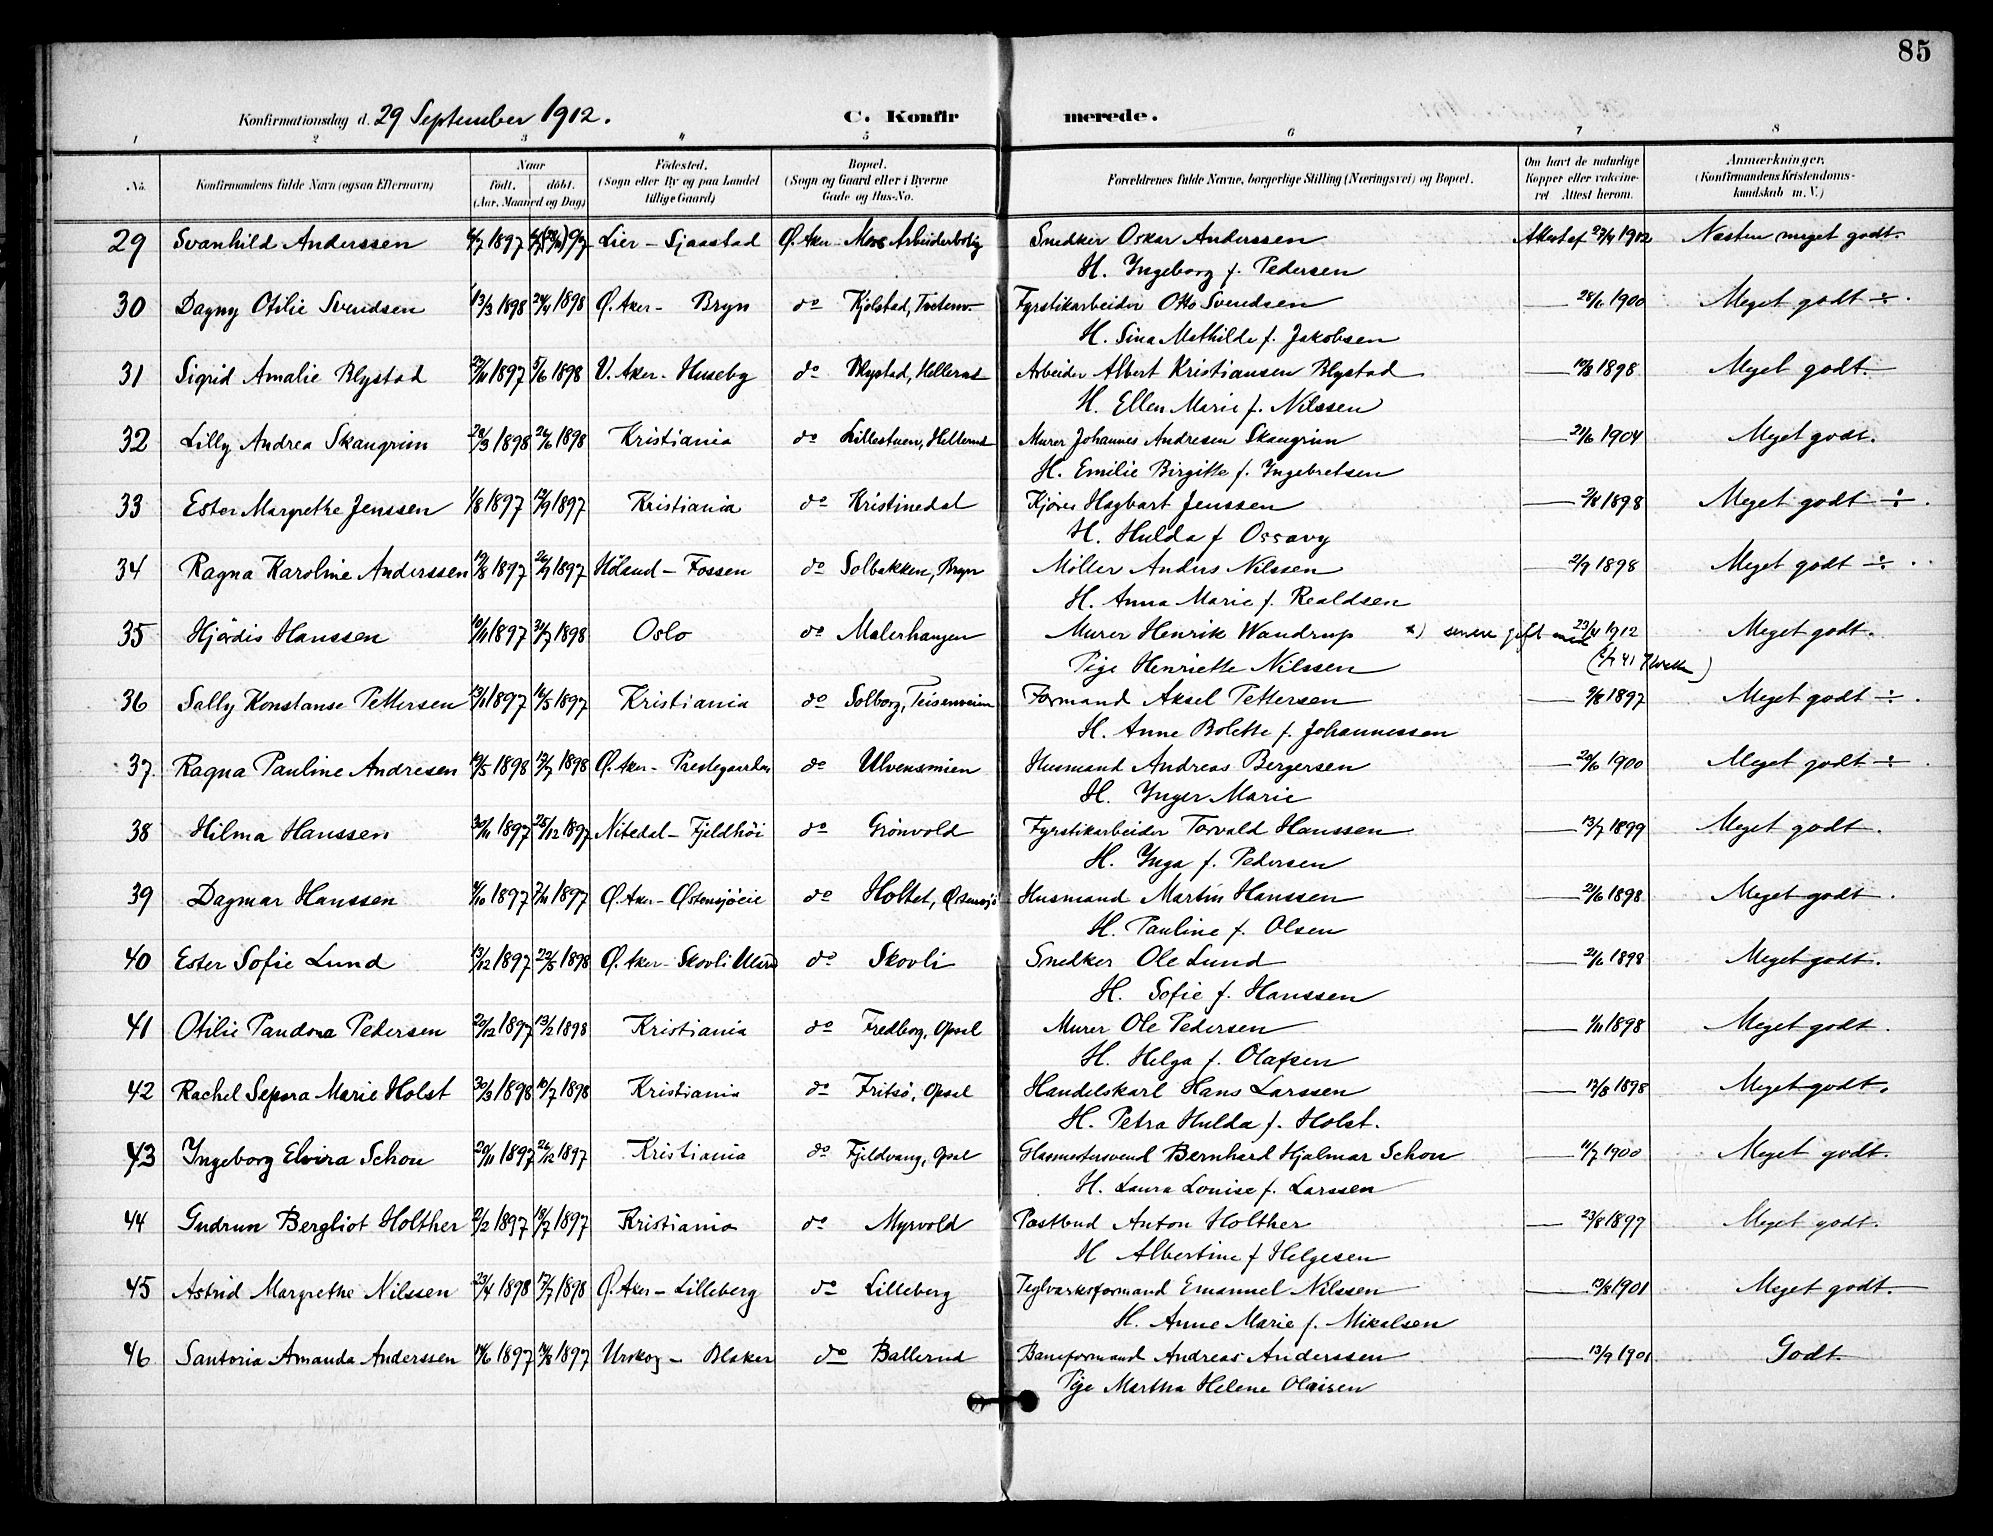 85
Konfirmationsdag d. 29 September 1912. C. Konfirmerede.
1 2 3 4 5 6 7 8
No. Konfirmandens fulde Navn (ogsaa Efternavn) Naar født. døbt. (Aar, Maaned og Dag) Födested. (Sogn eller By og paa Landet tillige Gaard) Bopæl. (Sogn og Gaard eller i Byerne Gade og Hus-No. Forældrenes fulde Navne, borgerlige Stilling (Næringsvei) og Bopæl. Om havt de naturlige Kopper eller vakcineret Attest herom. Anmærkninger. (Konfirmandens Kristendomskundskab m. V.)
29 Svanhild Anderssen 1897 Lier - Sjaastad Ø. Aker Mors Arbeiderbolig Snedker Oskar Anderssen Attest af 27/4 1912 Næsten meget godt.
H. Ingeborg f. Pedersen
30 Dagny Otilie Svendsen 13/3 1898 24/4 1898 Ø. Aker - Bryn do Kjølstad, Tvetenv. Fyrstikarbeider Otto Svendsen — 28/6 1900 Meget godt ÷.
H. Sina Mathilde f. Jakobsen
31 Sigrid Amalie Blystad 23/11 1897 5/6 1898 V. Aker - Huseby do Blystad, Hellerud Arbeider Albert Kristiansen Blystad — 1898 Meget godt.
H. Ellen Marie f. Nilssen
32 Lilly Andrea Skaugrim 28/3 1898 26/6 1898 Kristiania do Lillestuen, Hellerud Murer Johannes Andresen Skaugrim — 21/6 1904 Meget godt.
H. Emilie Birgitte f. Ingebretsen
33 Ester Margrethe Jenssen 1/8 1897 12/9 1897 Kristiania do Kristinedal Kjører Hagbart Jenssen — 1898 Meget godt ÷.
H. Hulda f. Ossavy
34 Ragna Karoline Anderssen 12/8 1897 26/9 1897 Høland - Fossen do Solbakken, Bryn Møller Anders Nilssen — 2/9 1898 Meget godt ÷.
H. Anna Marie f. Realdsen
35 Hjørdis Hanssen 10/11 1897 31/7 1898 Oslo do Malerhaugen Murer Henrik Wandrup x) senere gift med — 23/4 1912 Meget godt.
Pige Henriette Nilssen
36 Sally Konstanse Pettersen 1897 16/5 1897 Kristiania do Solborg, Teisenveien Formand Aksel Pettersen — 9/8 1897 Meget godt ÷.
H. Anne Bolette f. Johannessen
37. Ragna Pauline Andresen 1898 17/7 1898 Ø. Aker - Prestegaarden do Ulvensmien Husmand Andreas Bergersen — 20/6 1900 Meget godt ÷.
H. Inger Marie
38 Hilma Hanssen 30/11 1897 28/12 1897 Nitedal - Fjeldhöi do Grönvold Fyrstikarbeider Torvald Hanssen — 13/7 1899 Meget godt.
H. Inga f. Pedersen
39 Dagmar Hanssen 1897 7/11 1897 Ø. Aker - Østensjöeie do Holtet, Østensjö Husmand Martin Hanssen — 21/6 1898 Meget godt.
H. Pauline f. Olsen
40 Ester Sofie Lund 13/12 1897 22/5 1898 Ø. Aker - Skovli do Skovli Snedker Ole Lund — 21/6 1898 Meget godt.
H. Sofie f. Hanssen
41 Otilie Pandora Pedersen 20/12 1897 13/2 1898 Kristiania do Fredborg, Opsal Murer Ole Pedersen — 1/11 1898 Meget godt.
H. Helga f. Olafsen
42 Rachel Sepora Marie Holst 30/3 1898 10/7 1898 Kristiania do Fritsø, Opsal Handelskarl Hans Larssen — 1898 Meget godt.
H. Petra Hulda f. Holst.
43 Ingeborg Elvira Schou 20/11 1897 26/12 1897 Kristiania do Fjeldvang, Opsal Glasmestersvend Bernhard Hjalmar Schou — 11/7 1900 Meget godt.
H. Laura Louise f. Larssen
44 Gudrun Bergliot Holther 21/2 1897 18/7 1897 Kristiania do Myrvold Postbud Anton Holther — 23/8 1899 Meget godt.
H Albertine f Helgesen
45 Astrid Margrethe Nilssen 23/4 1898 17/7 1898 Ø. Aker - Lilleberg do Lilleberg Teglværksformand Emanuel Nilssen — 13/8 1901 Meget godt.
H. Anne Marie f. Mikalsen
46 Santoria Amanda Anderssen 14/6 1897 1897 Urskog - Blaker do Ballerud Baneformand Andreas Anderssen — 13/9 1901 Godt.
Pige Martha Helene Olaisen